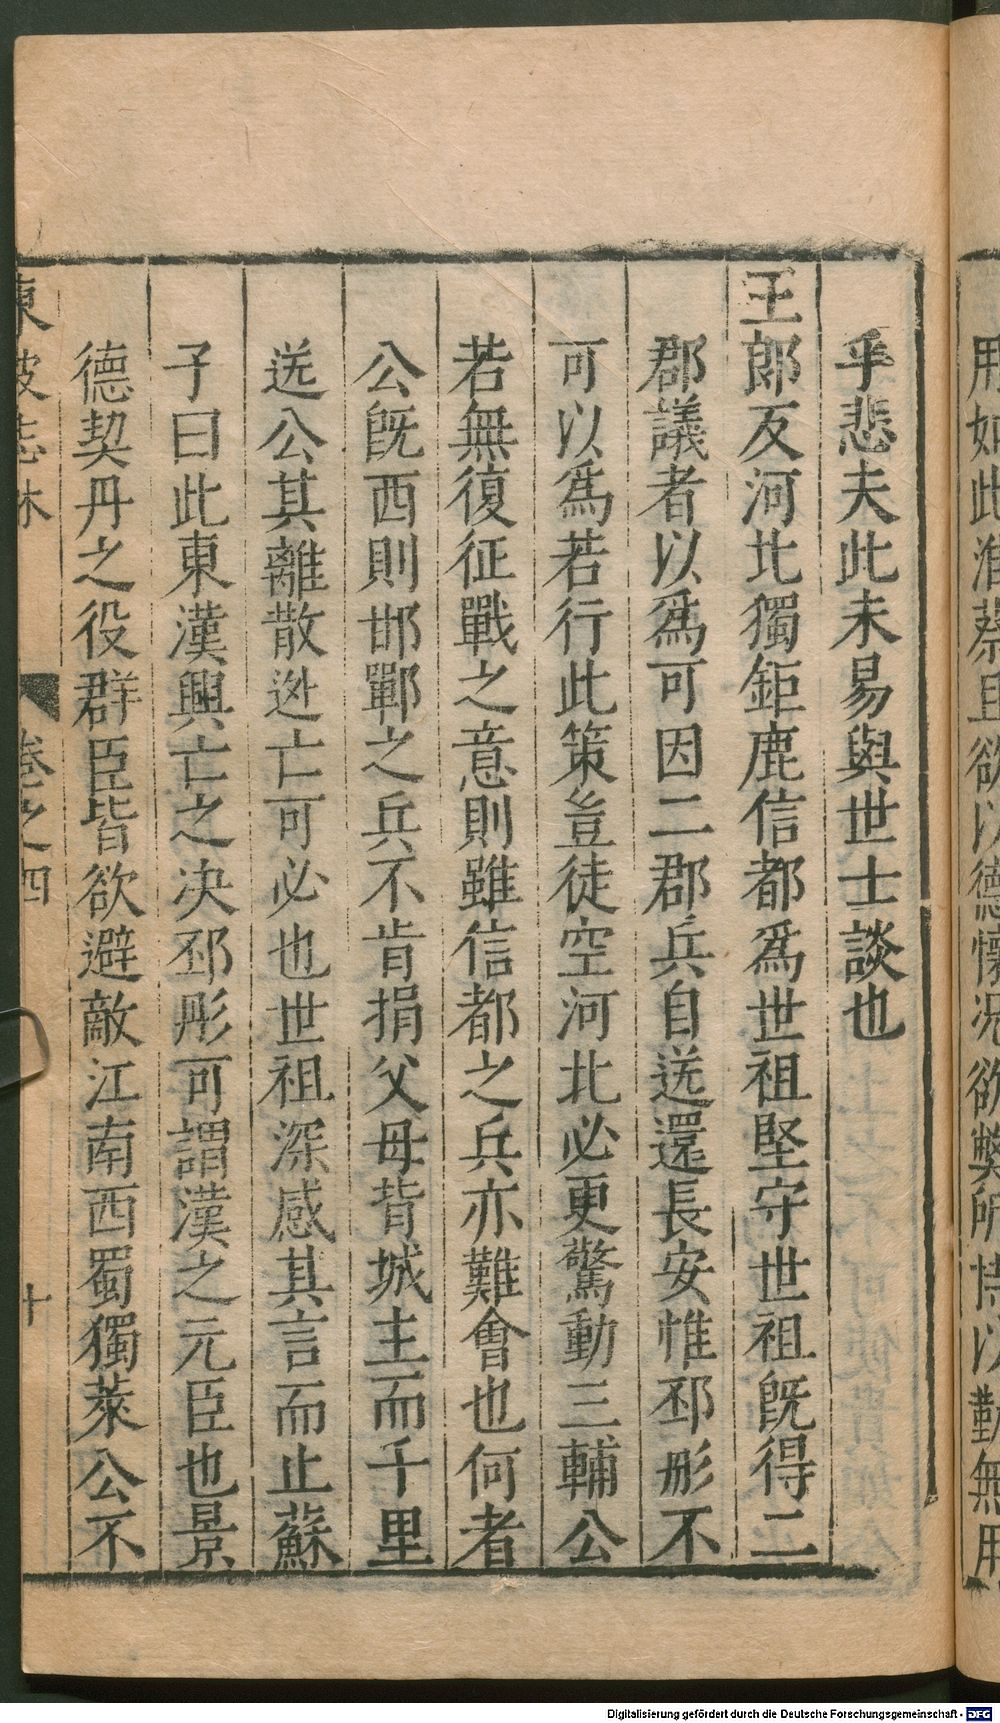 用如此淮蔡且欲以德懷况欲弊所恃以勤無用
乎悲夫此未易與世士談也
王郎反河北獨鉅鹿信都爲世祖堅守世祖旣得二
郡議者以爲可因二郡兵自送還長安惟邳彤不
可以爲若行此策豈徒空河北必更驚動三輔公
若無復征戰之意則雖信都之兵亦難會也何者
公旣西則邯鄲之兵不肯捐父母背城主而千里
送公其離散逃亡可必也世祖深感其言而止蘇
子曰此東漢興亡之决邳彤可謂漢之元臣也景
德契丹之役群臣皆欲避敵江南西蜀獨萊公不
東坡志林 卷之四 十
Digitalisierung gefördert durch die Deutsche Forschungsgemeinschaft - DFG